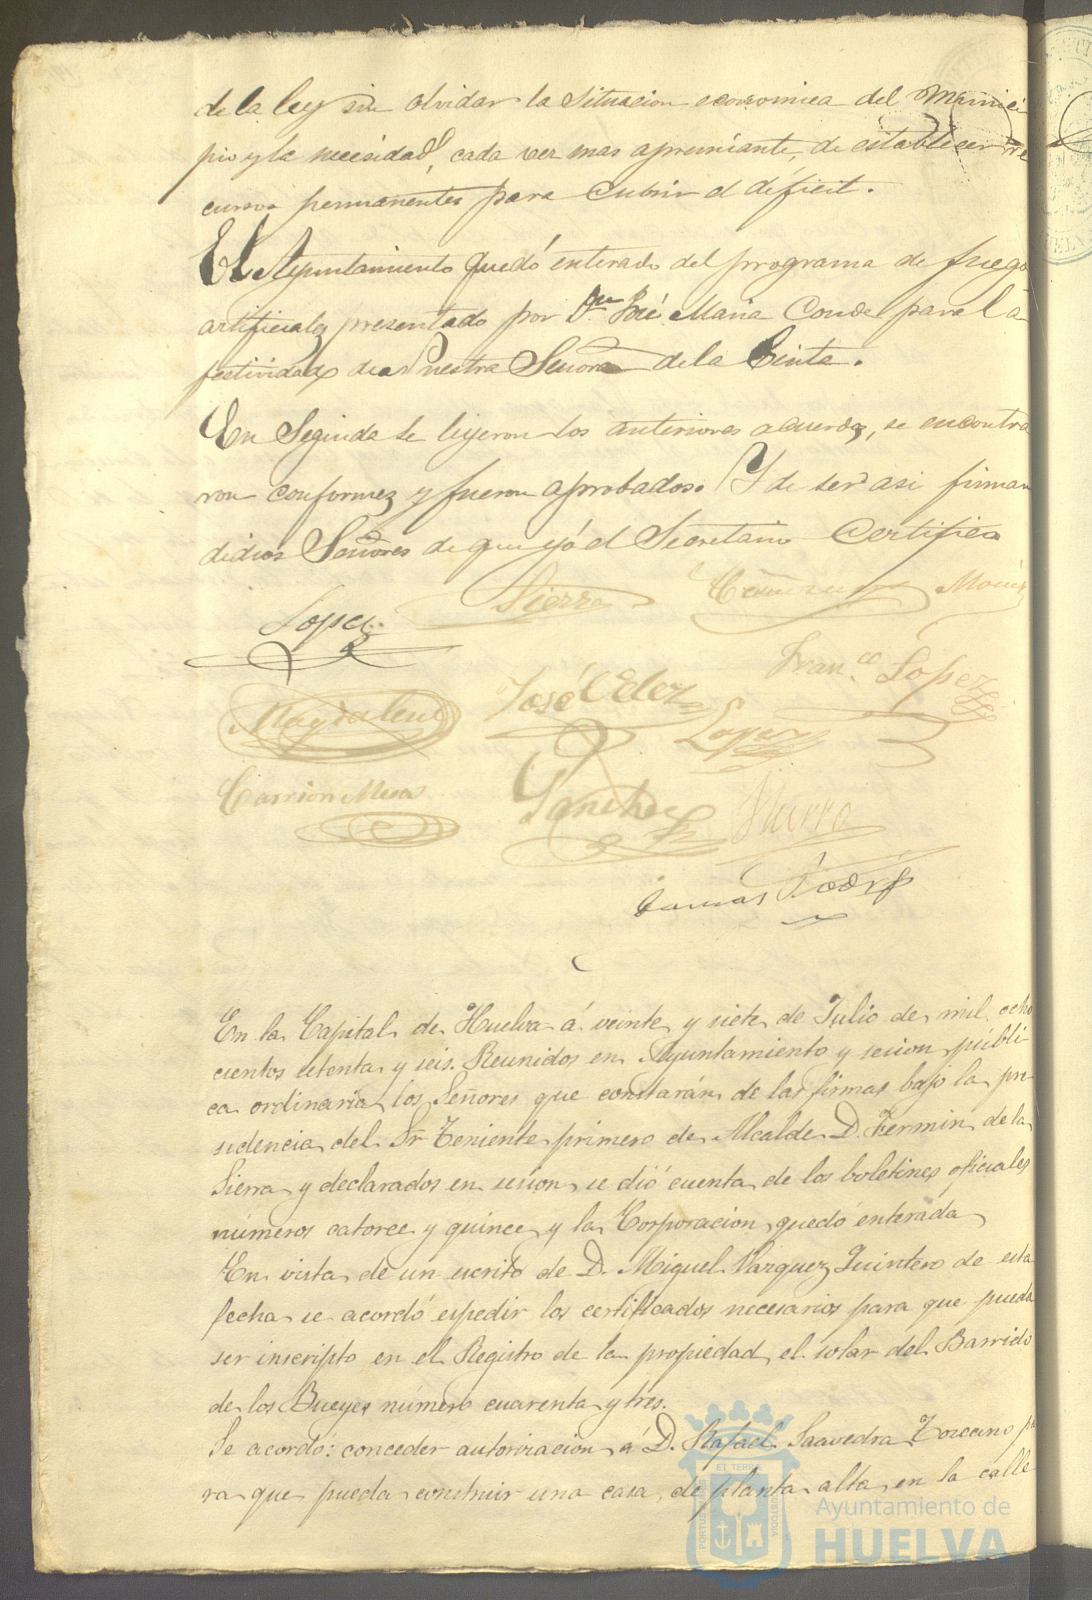 de la ley sin olvidar la situacion economica del Munici
pio y la necesidad, cada vez mas apremiante, de establecer re
cursos permanentes para cubrir el déficit.
El Ayuntamiento quedó enterado del programa de fuegos
artificiales presentado por Dn. José Maria Conde para la
festividad de Nuestra Señora de la Cinta.
En Seguida se leyeron los anteriores acuerdos, se encontra
ron conformes y fueron aprobados. Y de ser asi firman
dichos Señores de que yó el Secretario Certifico
Lopez Sierra
Magdalena José Franco. López
Lopez
Carrion Mesa Sanchez
En la Capital de Huelva á veinte y siete de Julio de mil ocho
cientos setenta y seis. Reunidos en Ayuntamiento y sesion públi-
ca ordinaria los Señores que constarán de las firmas bajo la pre
sidencia del Sr. Teniente primero de Alcalde D. Fermin de la
Sierra y declarados en sesion se dió cuenta de los boletines oficiales
números catorce y quince y la Corporacion quedó enterada
En vista de un escrito de D. Miguel Vazquez Quintero de esta
fecha se acordó espedir los certificados necesarios para que pueda
ser inscripto en el Registro de la propiedad el solar del Barrido
de los Bueyes número cuarenta y tres.
Se acordó: conceder autorizacion á D. Rafael Saavedra Toscano pa
ra que pueda construir una casa de planta alta en la calle
Ayuntamiento de
HUELVA